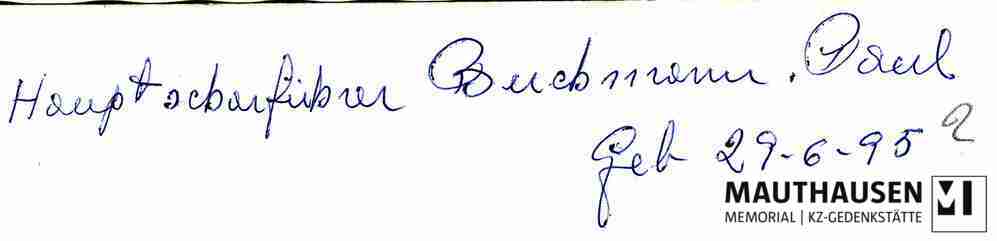 Hauptscharführer Buckmann. Paul
Geb 29-6-95 ?
MAUTHAUSEN
MEMORIAL | KZ-GEDENKSTÄTTE